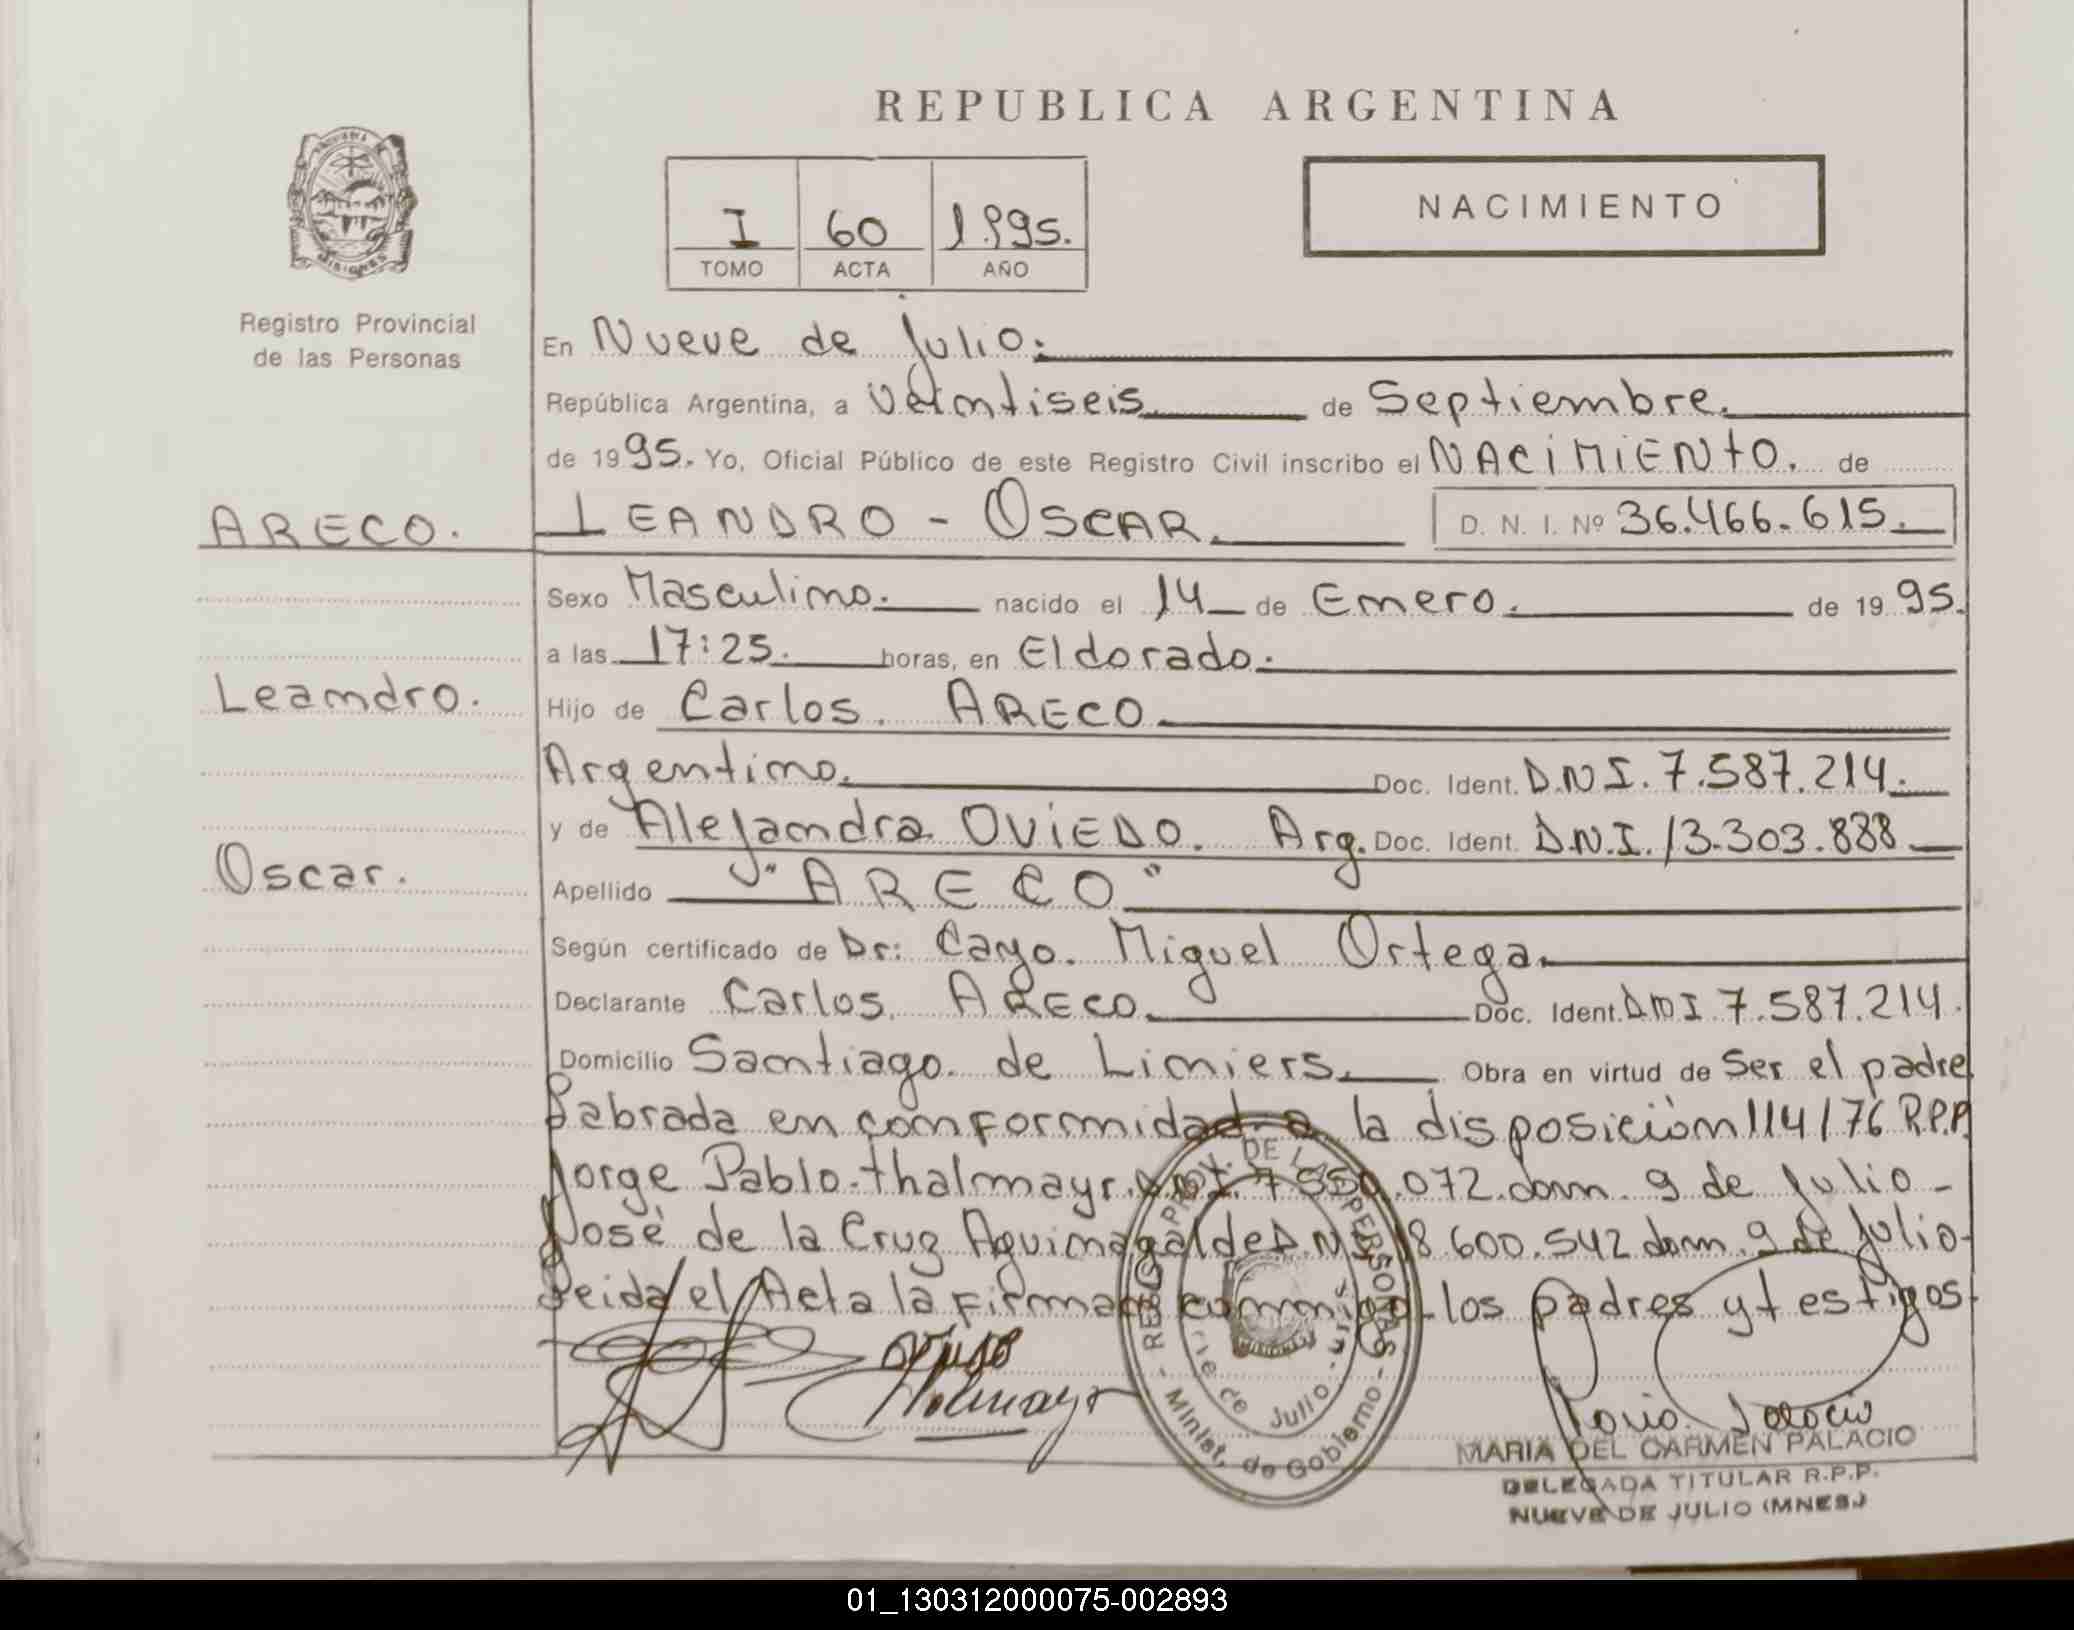 REPUBLICA ARGENTINA
NACIMIENTO
I 60 1995.
TOMO ACTA AÑO
Registro Provincial
de las Personas
En Nueve de Julio.
República Argentina, a Veintiseis de Septiembre.
de 1995. Yo, Oficial Público de este Registro Civil inscribo el NACIMIENTO. de
ARECO. LEANDRO - OSCAR. D. N. I. Nº 36.466.615.
Sexo Masculino. nacido el 14 de Enero. de 1995.
a las 17:25. horas, en Eldorado.
Leandro. Hijo de Carlos. ARECO
Argentino. Doc. Ident. D.N.I. 7.587.214.
y de Alejandra OVIEDO. Arg. Doc. Ident. D.N.I. 13.303.888
Oscar. Apellido "ARECO"
Según certificado de Dr: Cayo. Miguel Ortega.
Declarante Carlos. ARECO. Doc. Ident. DNI 7.587.214.
Domicilio Santiago. de Liniers. Obra en virtud de Ser el padre
Labrada en conformidad a la disposición 114/76 R.P.P.
Jorge Pablo. thalmayr. DNI. 7.550.072. dom. 9 de Julio -
José de la Cruz Aquimagalde D.N.I. 18.600.542 dom. 9 de Julio-
Leida el Acta la firman conmigo los padres y testigos
REG. PROV. DE LAS PERSONAS
Minist. de Gobierno
Julio
MARIA DEL CARMEN PALACIO
DELEGADA TITULAR R.P.P.
NUEVE DE JULIO (MNES.)
01_130312000075-002893